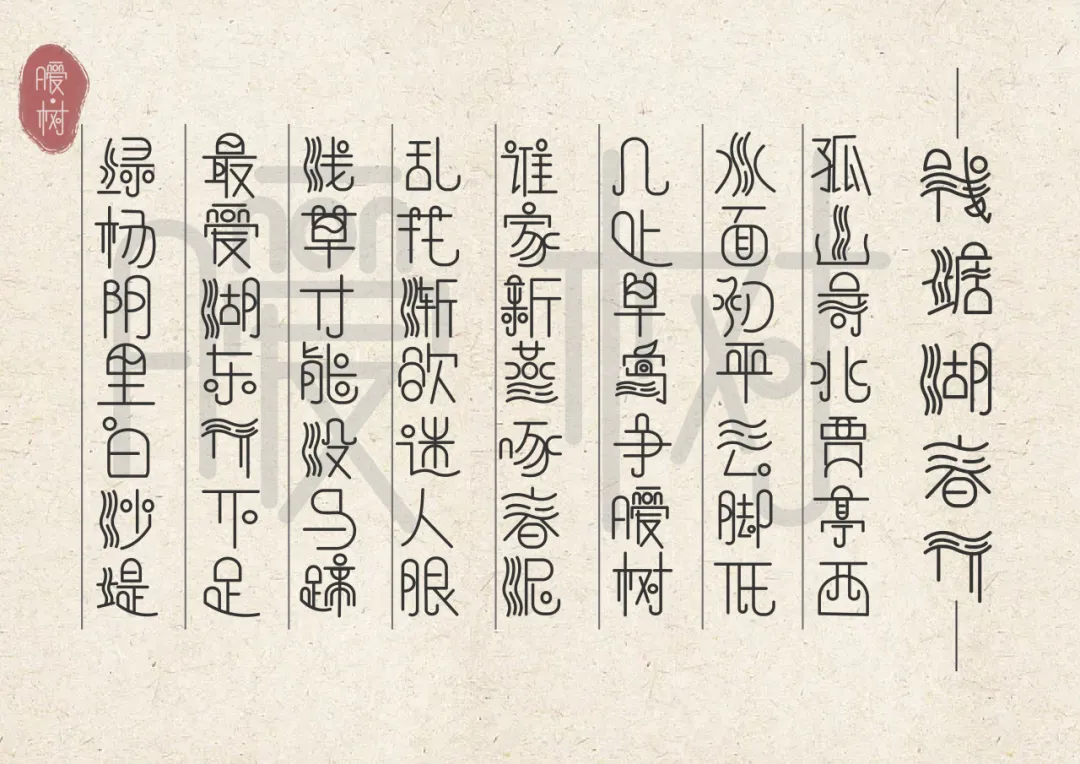 钱塘湖春行
孤山寺北贾亭西
水面初平云脚低
几处早莺争暖树
谁家新燕啄春泥
乱花渐欲迷人眼
浅草才能没马蹄
最爱湖东行不足
绿杨阴里白沙堤
暖树
暖树